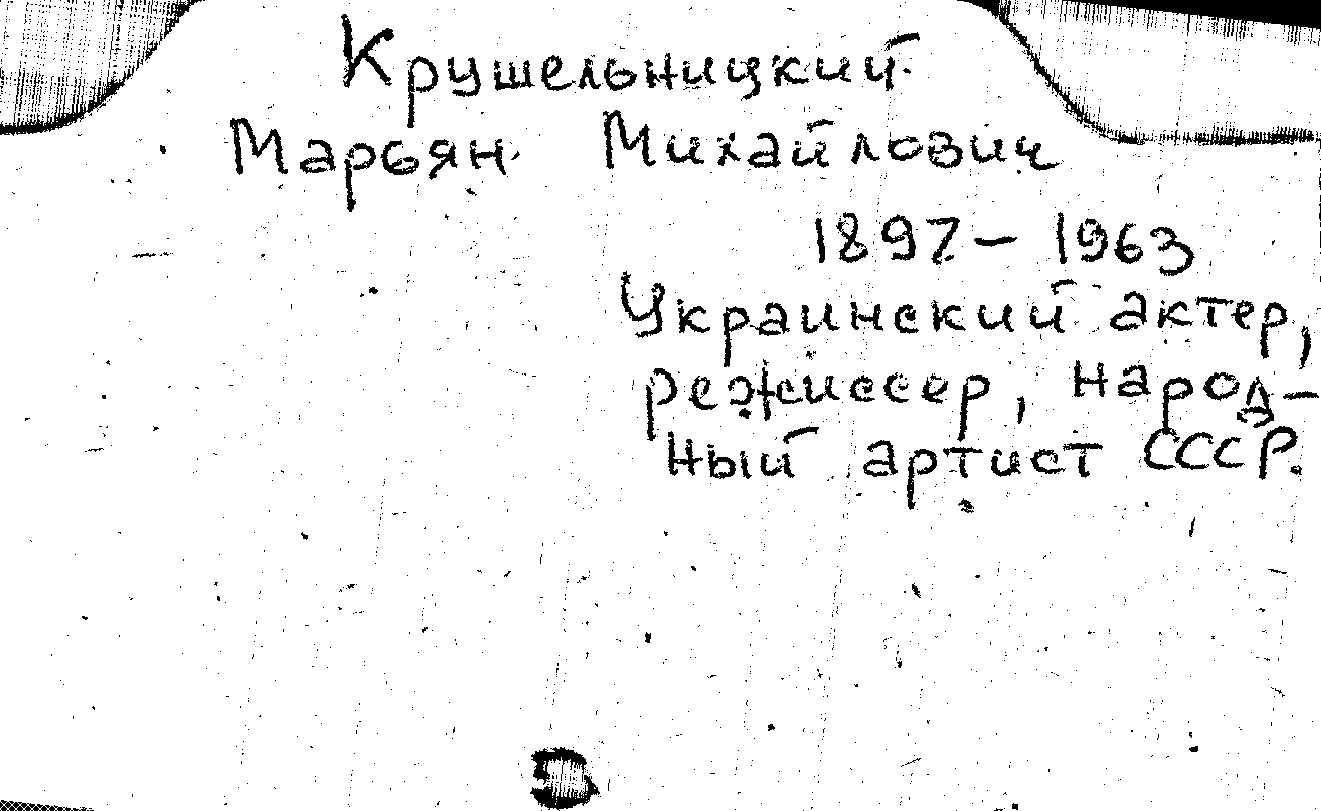 Крушельницкий
Марьян Михайлович
1897 – 1963
Украинский актер,
режиссер, народ-
ный артист СССР.